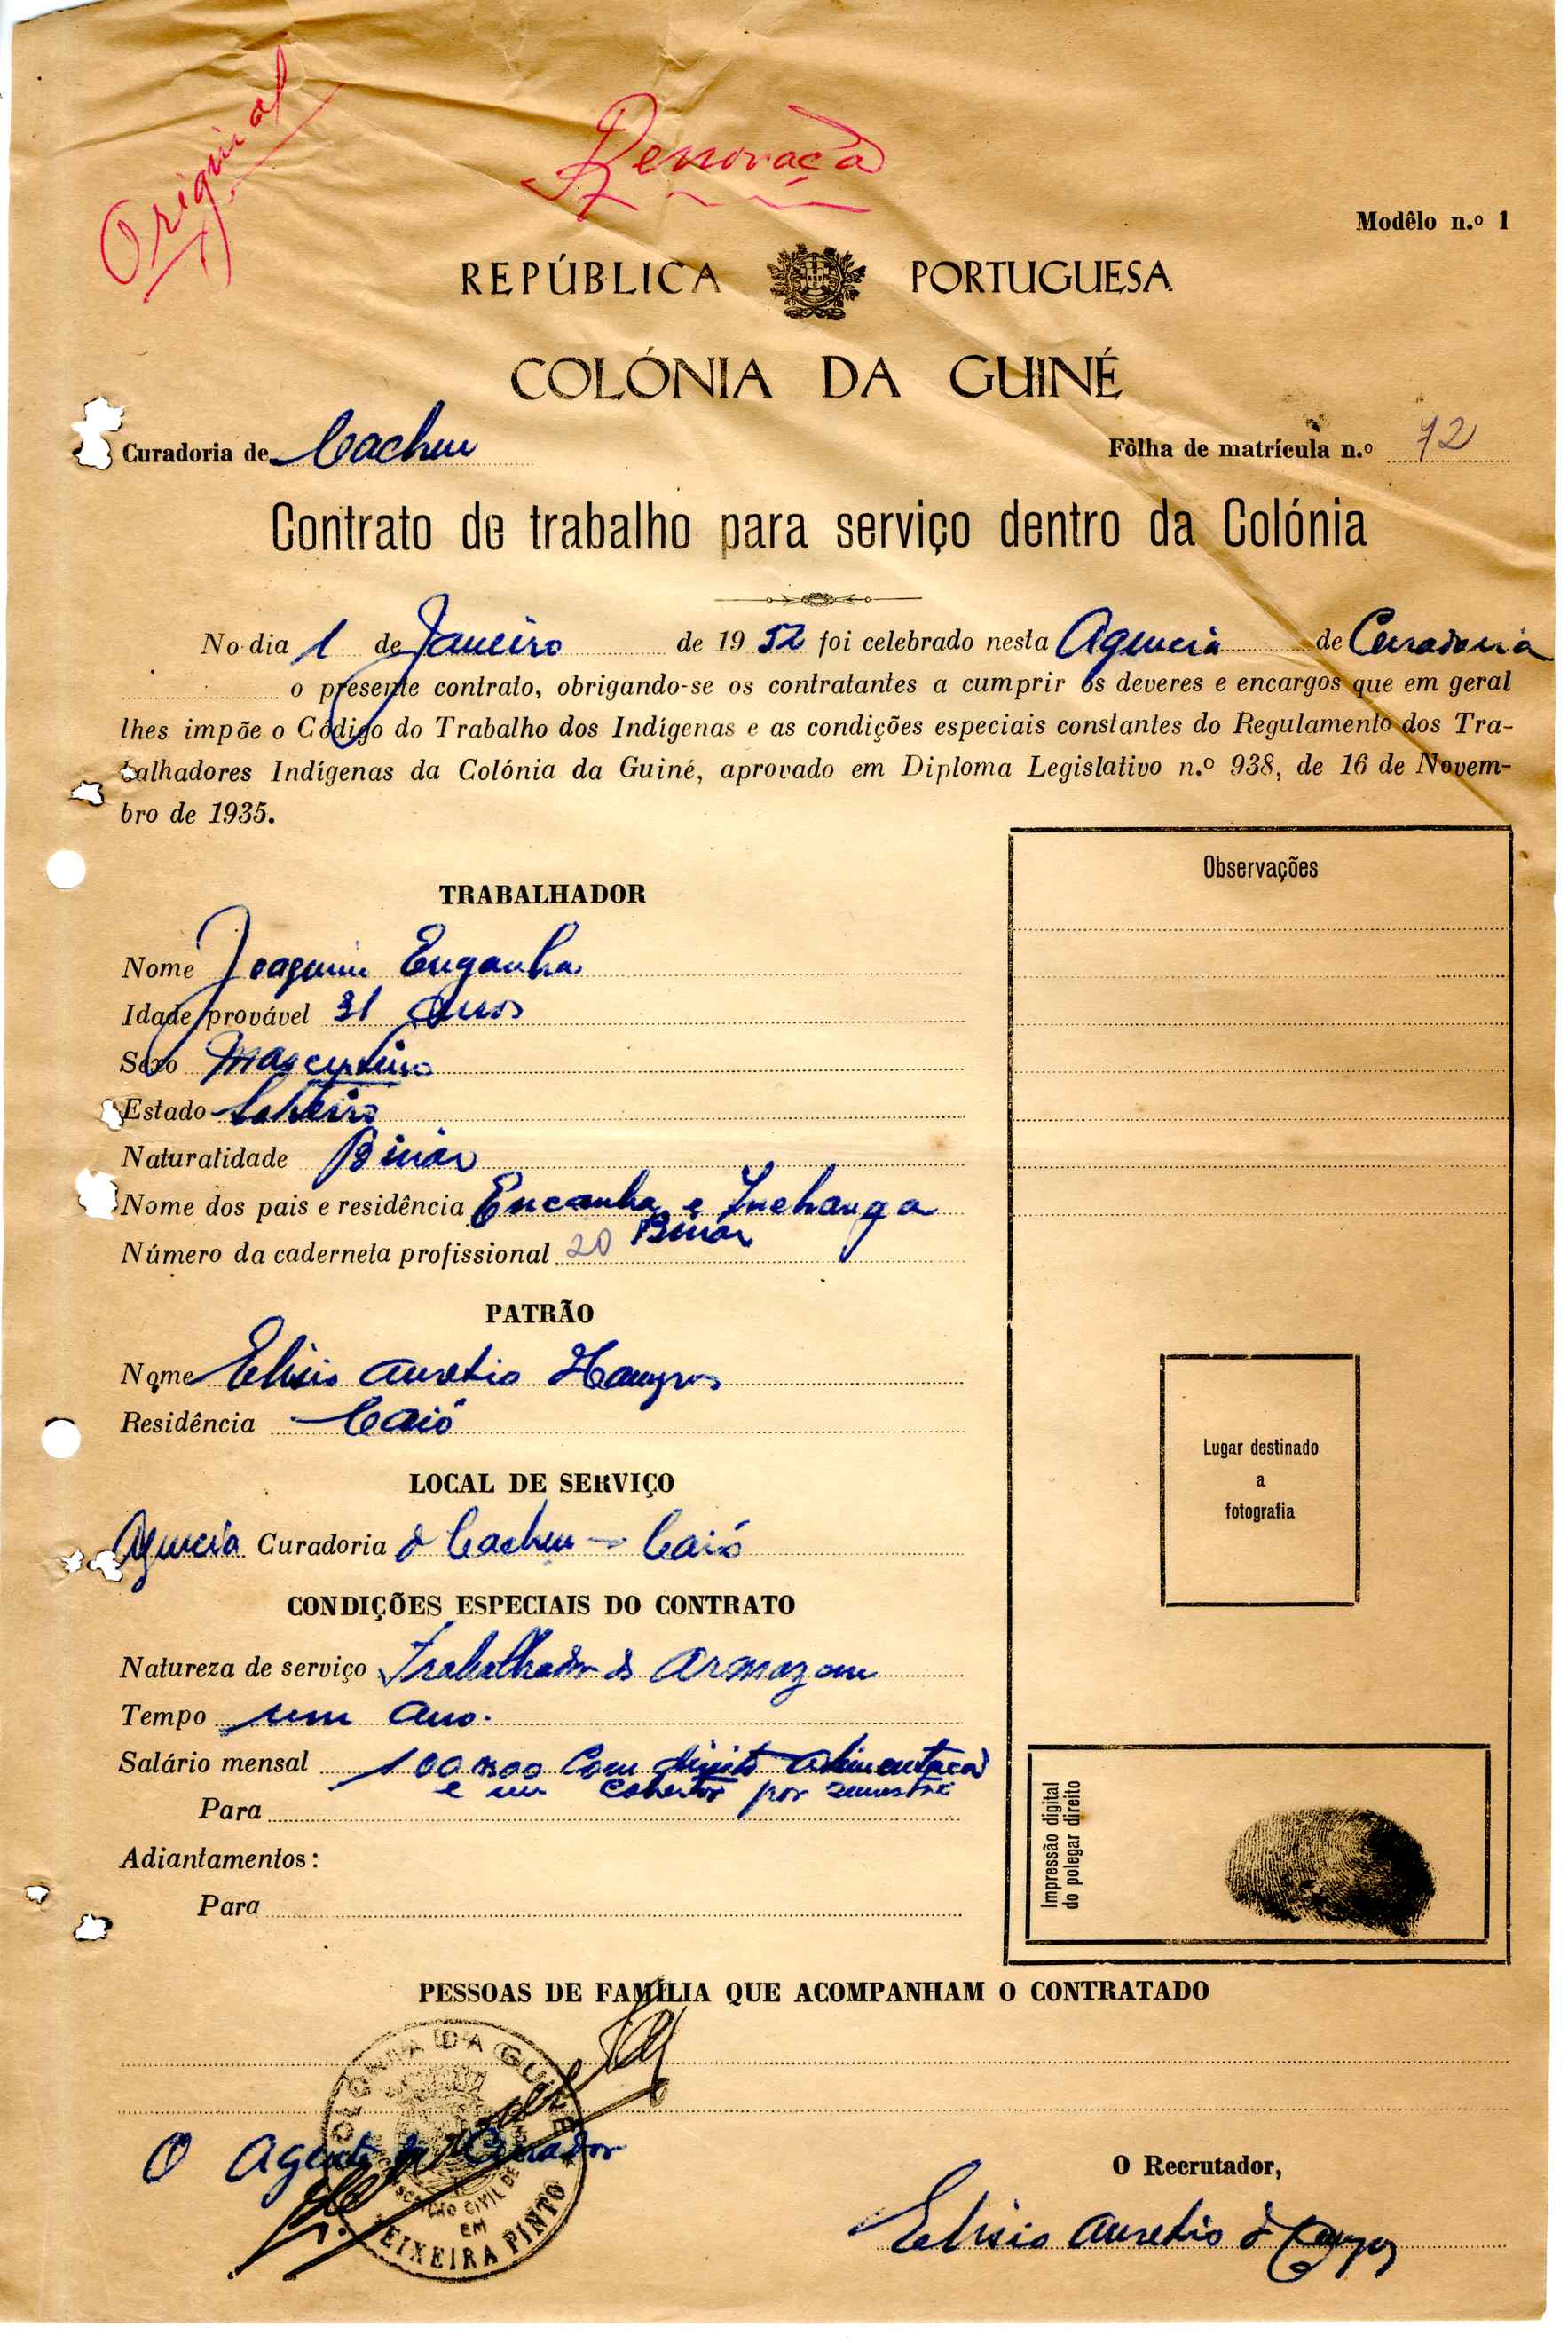 Original
Renovação
Modêlo n.º 1
REPÚBLICA PORTUGUESA
COLÓNIA DA GUINÉ
Curadoria de Cacheu
Fôlha de matrícula n.º 72
Contrato de trabalho para serviço dentro da Colónia
No dia 1 de Janeiro de 1952 foi celebrado nesta Agencia de Curadoria
o presente contrato, obrigando-se os contratantes a cumprir os deveres e encargos que em geral
lhes impõe o Código do Trabalho dos Indígenas e as condições especiais constantes do Regulamento dos Tra-
balhadores Indígenas da Colónia da Guiné, aprovado em Diploma Legislativo n.º 938, de 16 de Novem-
bro de 1935.
TRABALHADOR
Nome Joaquim Enganha
Idade provável 31 anos
Sexo Masculino
Estado Solteiro
Naturalidade Binar
Nome dos pais e residência Encanha e Inchanga
Binar
Número da caderneta profissional 20
PATRÃO
Nome Elisio Aurelio
Residência Caió
LOCAL DE SERVIÇO
Agencia Curadoria de Cacheu - Caió
CONDIÇÕES ESPECIAIS DO CONTRATO
Natureza de serviço Trabalhador de Armazem
Tempo um ano.
Salário mensal 100$00 Com direito alimentação
e um cobertor por semestre
Para
Adiantamentos:
Para
Observações
Lugar destinado
a
fotografia
Impressão digital
do polegar direito
PESSOAS DE FAMÍLIA QUE ACOMPANHAM O CONTRATADO
COLONIA DA GUINÉ
CIVIL DE
EM
TEIXEIRA PINTO
O Agente do Curador
O Recrutador,
Elisio Aurelio de